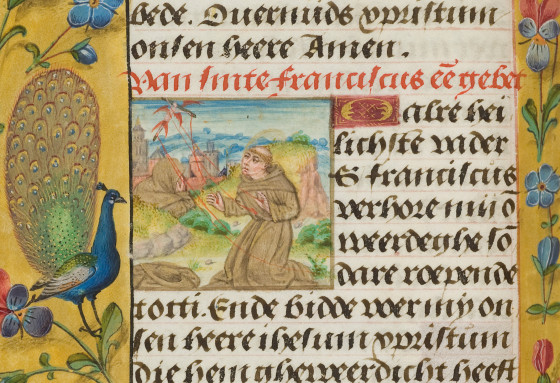 bede. Ouermids xpristum
onsen heere Amen.
Van sinte franciscus eē gebet
alre hei
lichste vader
S franciscus
verhore mij ō
weerdeghe sō
dare roepende
totti. Ende bidde voer my on
sen heere ihesum xpristum
die hem gheweerdicht heeft